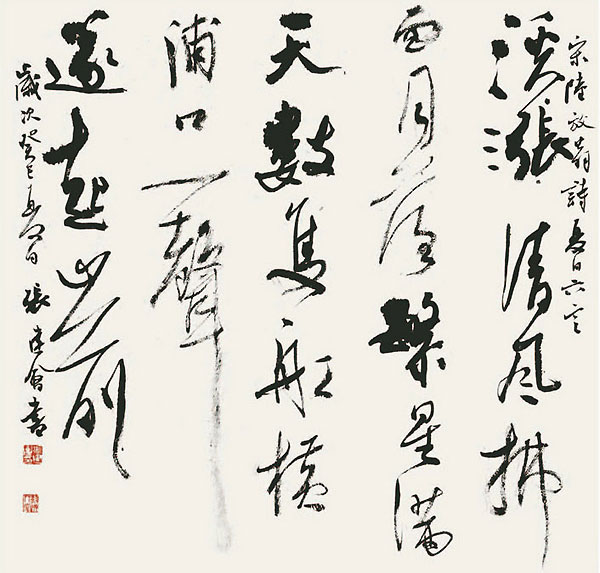 宋陸放翁詩夏日六言
溪漲清风拂
面月落繁星滿
天數隻船橫
浦口一聲
篴起山前
歲次癸巳夏日張建會書